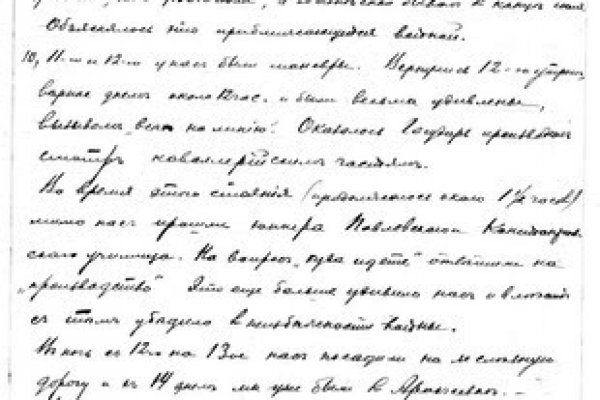 Объяснялось это приближающейся войной.
10, 11-го и 12-го у нас были маневры. Вернулись 12-го утром,
вернее днем около 12 час. и были весьма удивлены,
вызовом „всех на линию". Оказалось Государь производил
смотръ кавалерийским частям.
Во время этого стояния (продолжалось около 1½ часов)
мимо нас прошли юнкера Павловского
ского училища. На вопрос „куда идете" ответили на
„производство" Это еще больше удивило нас и
с тем убедило в неизбежности войны.
В ночь с 12го на 13ое нас посадили на железную
дорогу и 14 днем мы уже были в